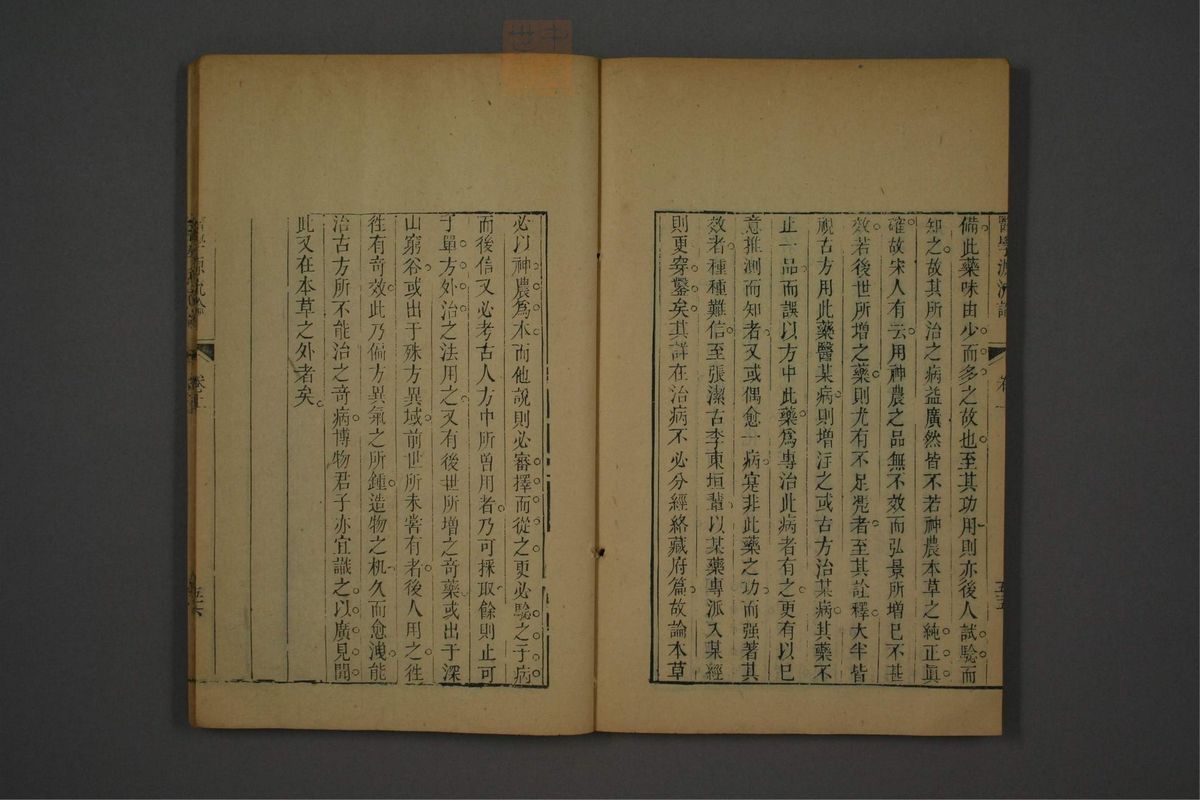 醫學源流論 卷上 五五
備此藥味由少而多之故也至其功用則亦後人試驗而
知之故其所治之病益廣然皆不若神農本草之純正眞
確故宋人有云用神農之品無不效而弘景所增已不甚
效若後世所增之藥則尤有不足凴者至其詮釋大半皆
視古方用此藥醫某病則增注之或古方治某病其藥不
止一品而誤以方中此藥爲專治此病者有之更有以己
意推測而知者又或偶愈一病寔非此藥之功而强著其
效者種種難信至張潔古李東垣輩以某藥專派入某經
則更穿鑿矣其詳在治病不必分經絡藏府篇故論本草
必以神農爲本而他說則必審擇而從之更必驗之于病
而後信又必考古人方中所曾用者乃可採取餘則止可
于單方外治之法用之又有後世所增之竒藥或出于深
山窮谷或出于殊方異域前世所未嘗有者後人用之徃
徃有竒效此乃偏方異氣之所鍾造物之机久而愈洩能
治古方所不能治之竒病博物君子亦宜識之以廣見聞
此又在本草之外者矣
卷上 五六